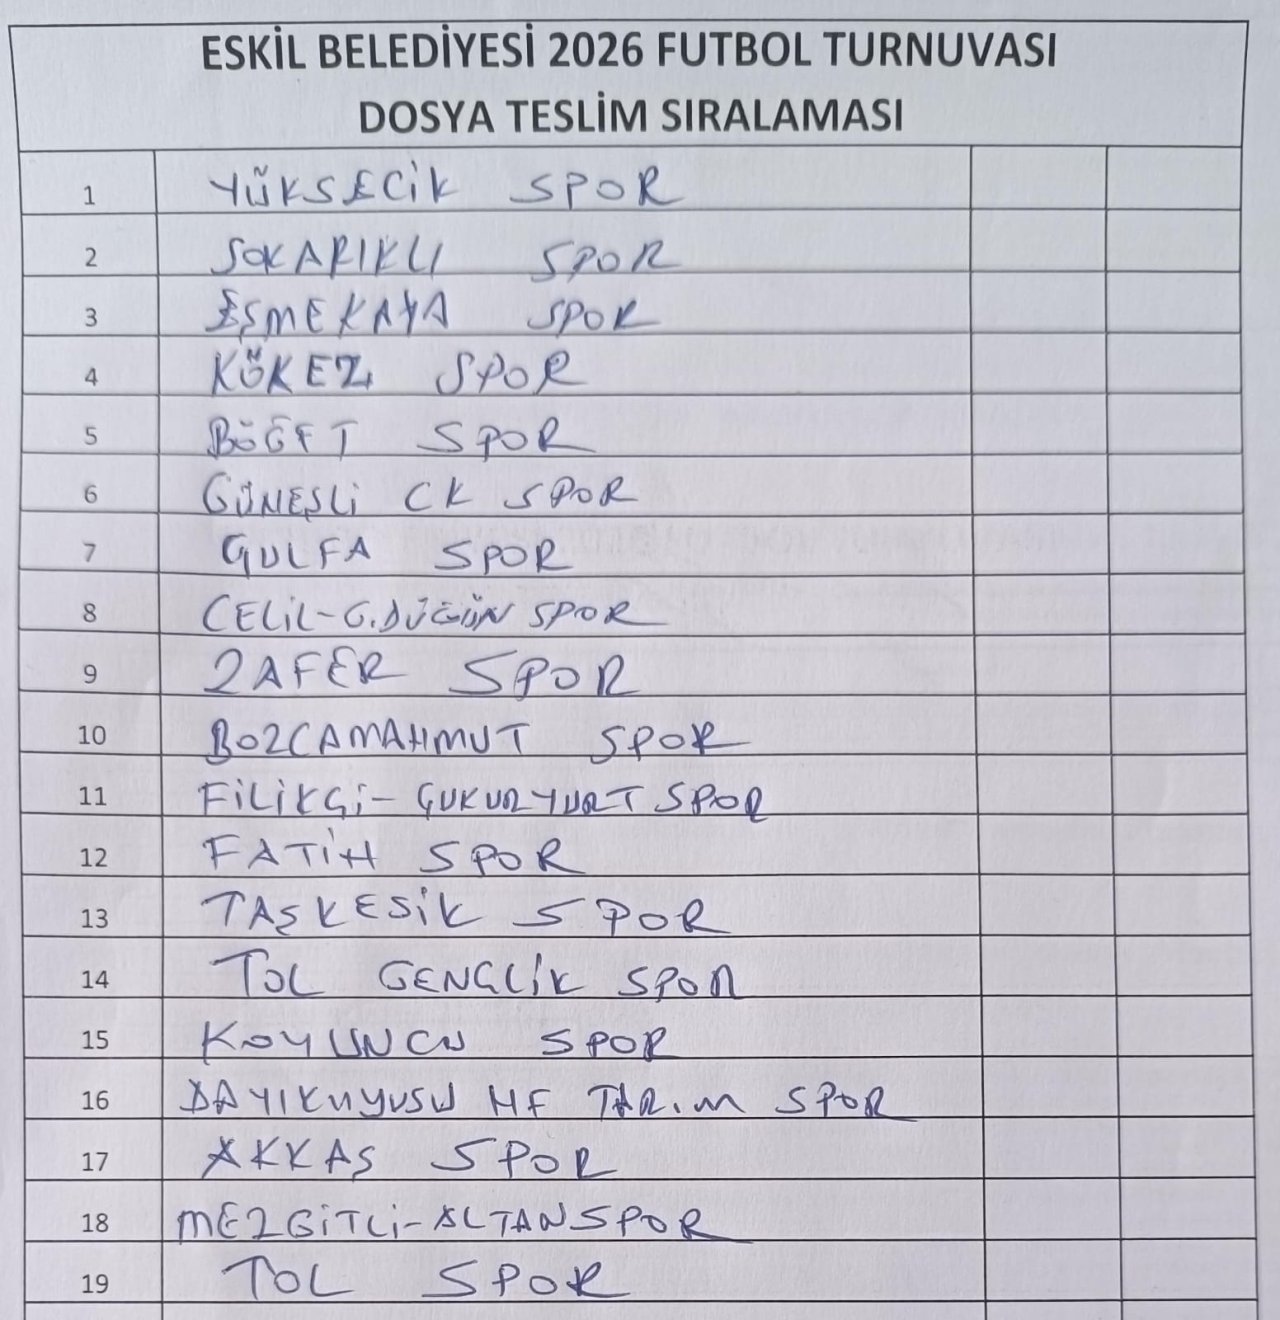 ESKİL BELEDİYESİ 2026 FUTBOL TURNUVASI
DOSYA TESLİM SIRALAMASI
1 YÜKSECİK SPOR
2 SOKARIKLI SPOR
3 EŞMEKAYA SPOR
4 KÖKEZ SPOR
5 BÖGET SPOR
6 GÜNEŞLİ CK SPOR
7 GULFA SPOR
8 CELİL-G.DÜĞÜN SPOR
9 ZAFER SPOR
10 BOZCAMAHMUT SPOR
11 FİLİKÇİ-ÇUKURYURT SPOR
12 FATİH SPOR
13 TAŞKESİK SPOR
14 TOL GENÇLİK SPOR
15 KOYUNCU SPOR
16 DAYIKUYUSU HF TARIM SPOR
17 AKKAŞ SPOR
18 MEZGİTLİ-ALTANSPOR
19 TOL SPOR